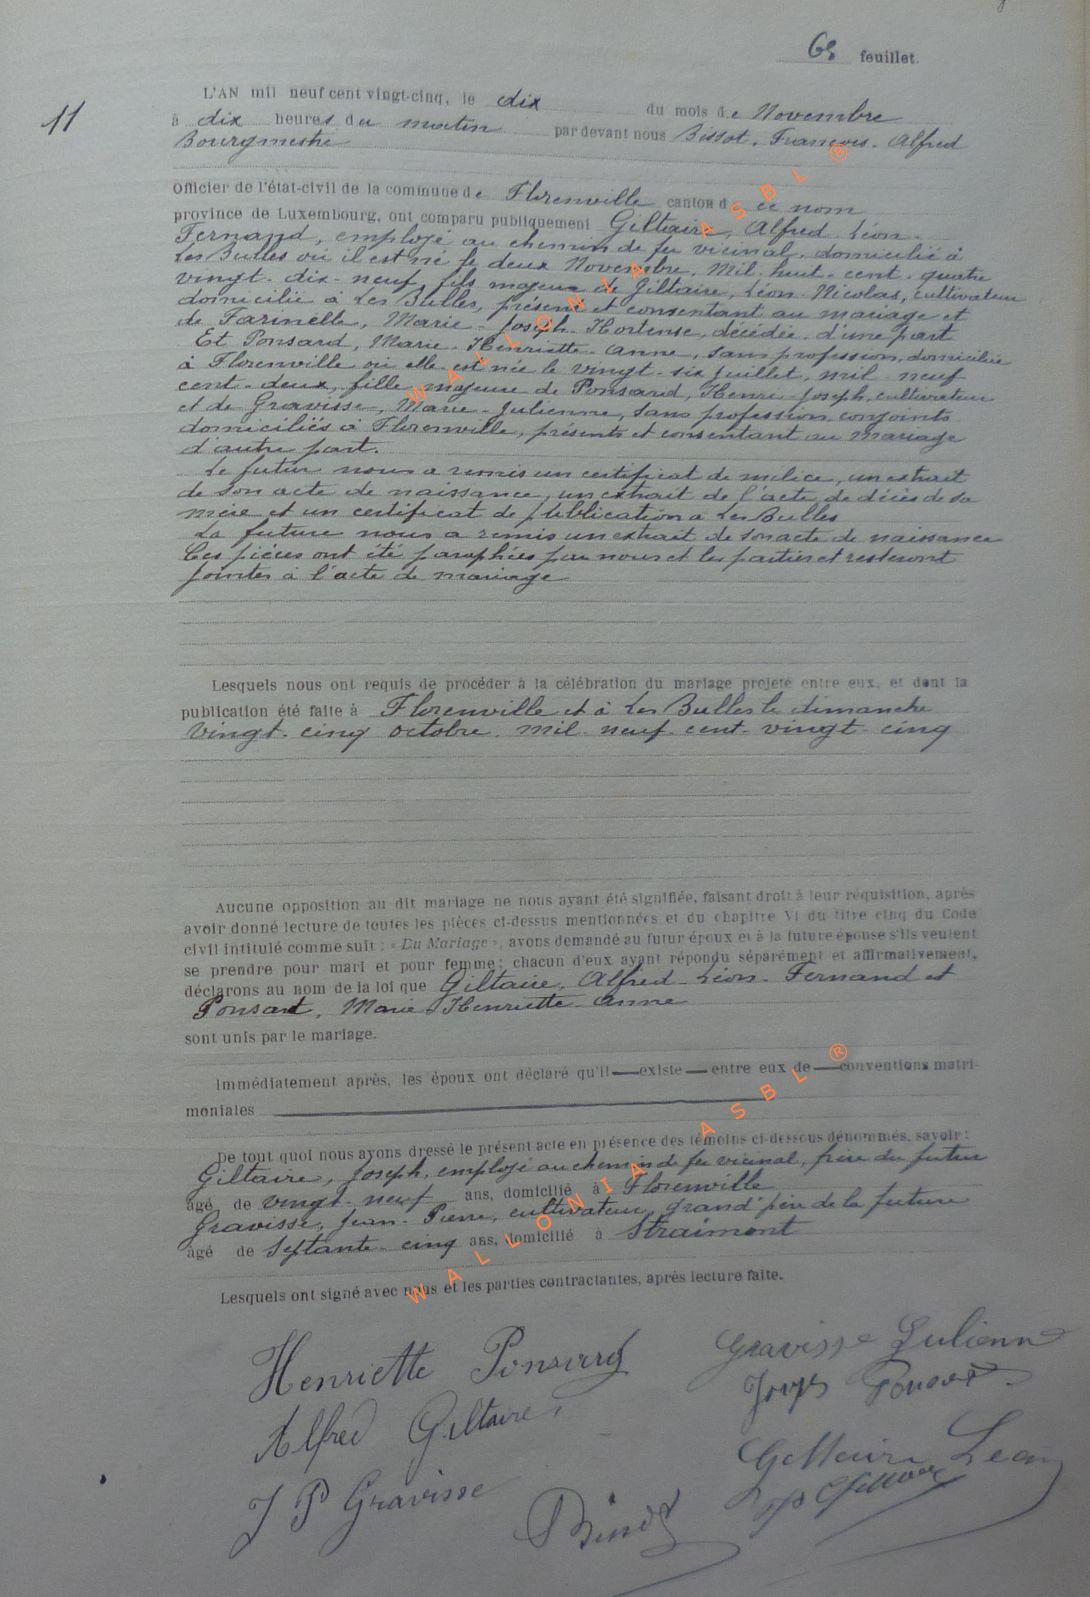 68 feuillet.
11
L'AN mil neuf cent vingt-cinq, le dix du mois de Novembre
à dix heures du matin par devant nous Bissot, François-Alfred
Bourgmestre
Officier de l'état-civil de la commune de Florenville canton de ce nom
province de Luxembourg, ont comparu publiquement Giltaire, Alfred-Léon-
Fernand, employé au chemin de fer vicinal, domicilié à
Les Bulles où il est né le deux Novembre, mil-huit-cent-quatre
vingt-dix-neuf, fils majeur de Giltaire, Léon-Nicolas, cultivateur
domicilié à Les Bulles, présent et consentant au mariage et
de Farinelle, Marie-Joseph-Hortense, décédée d'une part
Et Ponsard, Marie-Henriette-Anne, sans profession, domiciliée
à Florenville où elle est née le vingt-six juillet, mil-neuf
cent-deux, fille majeure de Ponsard, Henri-Joseph, cultivateur
et de Gravisse, Marie-Julienne, sans profession, conjoints
domiciliés à Florenville, présents et consentant au mariage
d'autre part.
Le futur nous a remis un certificat de milice, un extrait
de son acte de naissance, un extrait de l'acte de décès de sa
mère et un certificat de publication à Les Bulles
La future nous a remis un extrait de son acte de naissance
Ces pièces ont été paraphées par nous et les parties et resteront
jointes à l'acte de mariage
Lesquels nous ont requis de procéder à la célébration du mariage projeté entre eux, et dont la
publication été faite à Florenville et à Les Bulles le dimanche
vingt-cinq octobre mil-neuf-cent-vingt-cinq
Aucune opposition au dit mariage ne nous ayant été signifiée, faisant droit à leur réquisition, après
avoir donné lecture de toutes les pièces ci-dessus mentionnées et du chapitre VI du titre cinq du Code
civil intitulé comme suit : « Du Mariage », avons demandé au futur époux et à la future épouse s'ils veulent
se prendre pour mari et pour femme; chacun d'eux ayant répondu séparément et affirmativement,
déclarons au nom de la loi que Giltaire, Alfred-Léon-Fernand et
Ponsard, Marie-Henriette-Anne
sont unis par le mariage.
Immédiatement après, les époux ont déclaré qu'il — existe — entre eux de — conventions matri-
moniales
De tout quoi nous avons dressé le présent acte en présence des témoins ci-dessous dénommés, savoir :
Giltaire, Joseph, employé au chemin de fer vicinal, frère du futur
âgé de vingt-neuf ans, domicilié à Florenville
Gravisse, Jean-Pierre, cultivateur, grand'père de la future
âgé de septante-cinq ans, domicilié à Straimont
Lesquels ont signé avec nous et les parties contractantes, après lecture faite.
Henriette Ponsard
Gravisse Julienne
Alfred Giltaire
Ponsard
J P Gravisse
Giltaire Léon
Bissot
WALLONIA ASBL ®
WALLONIA ASBL ®